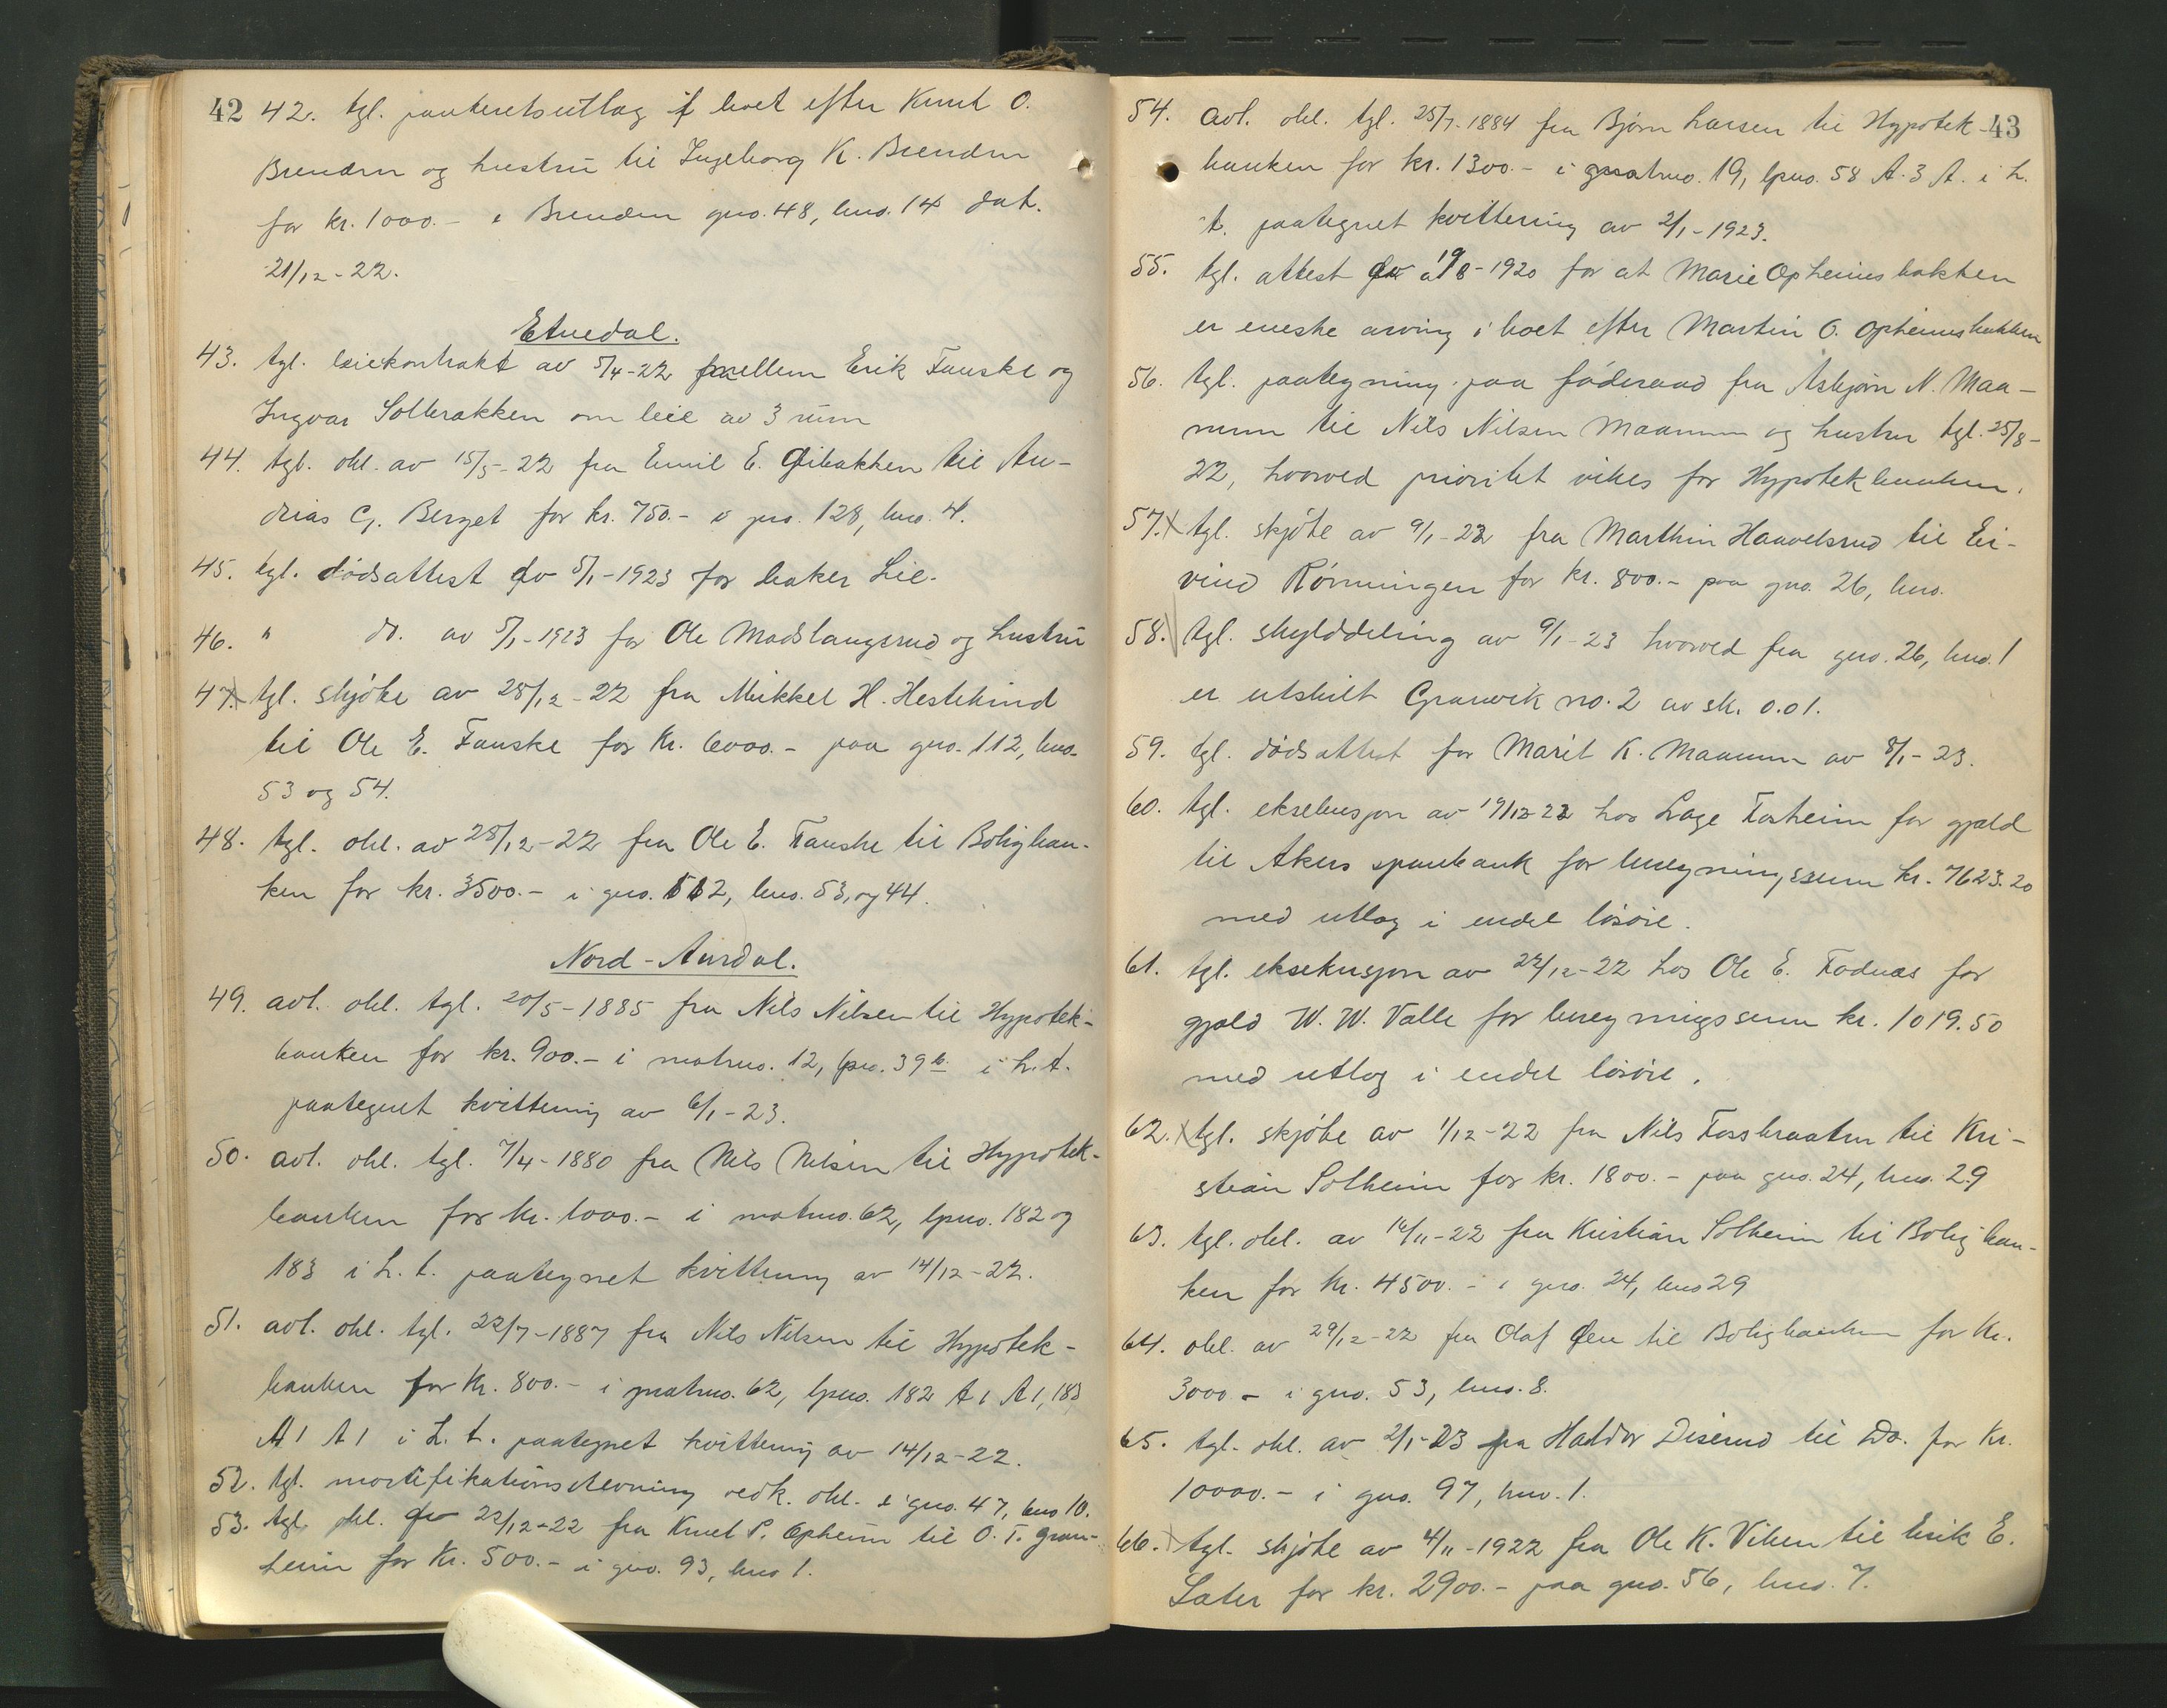 42
42. tgl. panteretsutlæg i boet efter Knut O.
Brenden og hustru til Ingeborg K. Brenden
for kr. 1000.- i Brenden gno. 48, bno. 14 dat.
21/12-22.
Etnedal.
43. tgl. leiekontrakt av 5/4-22 mellem Erik Fauske og
Ingvar Solbrækken om leie av 3 rum
44. tgl. obl. av 15/5-22 fra Emil E. til An-
dreas G. Berget for kr. 750.- i gno. 128, bno. 4.
45. tgl. dødsattest av 5/1-1923 for baker Lie.
46. " do. av 5/1-1923 for Ole Madslangsrud og hustru
47. tgl. skjøte av 28/12-22 fra Mikkel H. Hestekind
til Ole E. Fauske for Kr. 6000.- paa gno. 112, bno.
53 og 54.
48. tgl. obl. av 28/12-22 fra Ole E. Fauske til Boligban-
ken for kr. 3500.- i gno. 112, bno. 53, og 44.
Nord-Aurdal.
49. avl. obl. tgl. 20/5-1885 fra Nils Nilsen til Hypotek-
banken for kr. 900.- i matrno. 12, lpno. 39 b. i h.t.
paategnet kvittering av 6/1-23.
50. avl. obl. tgl. 7/4-1880 fra Nils Nilsen til Hypotek-
banken for kr. 1000.- i matrno. 62, lpno. 182 og
183 i h.t. paategnet kvittering av 14/12-22.
51. avl. obl. tgl. 22/7-1887 fra Nils Nilsen til Hypotek-
banken for Kr. 800.- i matrno. 62, lpno. 182 A 1 A 1, 183
A 1 A 1 i h.t. paategnet kvittering av 14/12-22.
52. tgl. mortifikationsstevning vedk. obl. i gno. 47, bno 10.
53. tgl. obl. av 22/12-22 fra Knut P. Opheim til O. T. Gran-
heim for Kr. 500.- i gno. 93, bno 1.
43
54. avl. obl. tgl. 25/7-1884 fra Bjørn Larsen til Hypotek-
banken for kr. 1300.- i matrno. 19, lpno. 58 A. 3 A. i h.
t. paategnet kvittering av 2/1-1923.
55. tgl. attest av 19/8-1920 for at Marie Opheimsbakken
er eneste arving i boet efter Martin O. Opheimsbakken
56. tgl. paategning paa føderaad fra Asbjørn N. Maa-
num til Nils Nilsen Maanum og hustru tgl. 25/8-
22, hvorved prioritet vikes for Hypotekbanken.
57. tgl. skjøte av 9/1-23 fra Marthin Haavelsrud til Ei-
vind Rønningen for kr. 800.- paa gno. 26, bno.
58. tgl. skylddeling av 9/1-23 hvorved fra gno. 26, bno. 1
er utskilt Granvik no. 2 av sk. 0.01.
59. tgl. dødsattest for Marit K. Maanum av 8/1-23.
60. tgl. eksekusjon av 19/12-22 hos Lage Fosheim for gjæld
til Akers sparebank for beregningssum kr. 7623.20
med utlæg i endel løsøre.
61. tgl. eksekusjon av 22/12-22 hos Ole E. Fodnæs for
gjæld W. W. Valle for beregningssum kr. 1019.50
med utlæg i endel løsøre.
62. tgl. skjøte av 1/12-22 fra Nils Fossbraaten til Kri-
stian Solheim for kr. 1800.- paa gno. 24, bno. 29
63. tgl. obl. av 16/11-22 fra Kristian Solheim til Boligban-
ken for Kr. 4500.- i gno. 24, bno 29
64. obl. av 29/12-22 fra Olaf til Boligbanken for Kr.
3000 - i gno. 53, bno. 8.
65. tgl. obl. av 2/1-23 fra Haldor Diserud til Do. for Kr.
10000.- i gno. 97, bno. 1.
66. tgl. skjøte av 4/11-1922 fra Ole K. Viken til Erik E.
Sæter for kr. 2900.- paa gno. 56, bno. 7.